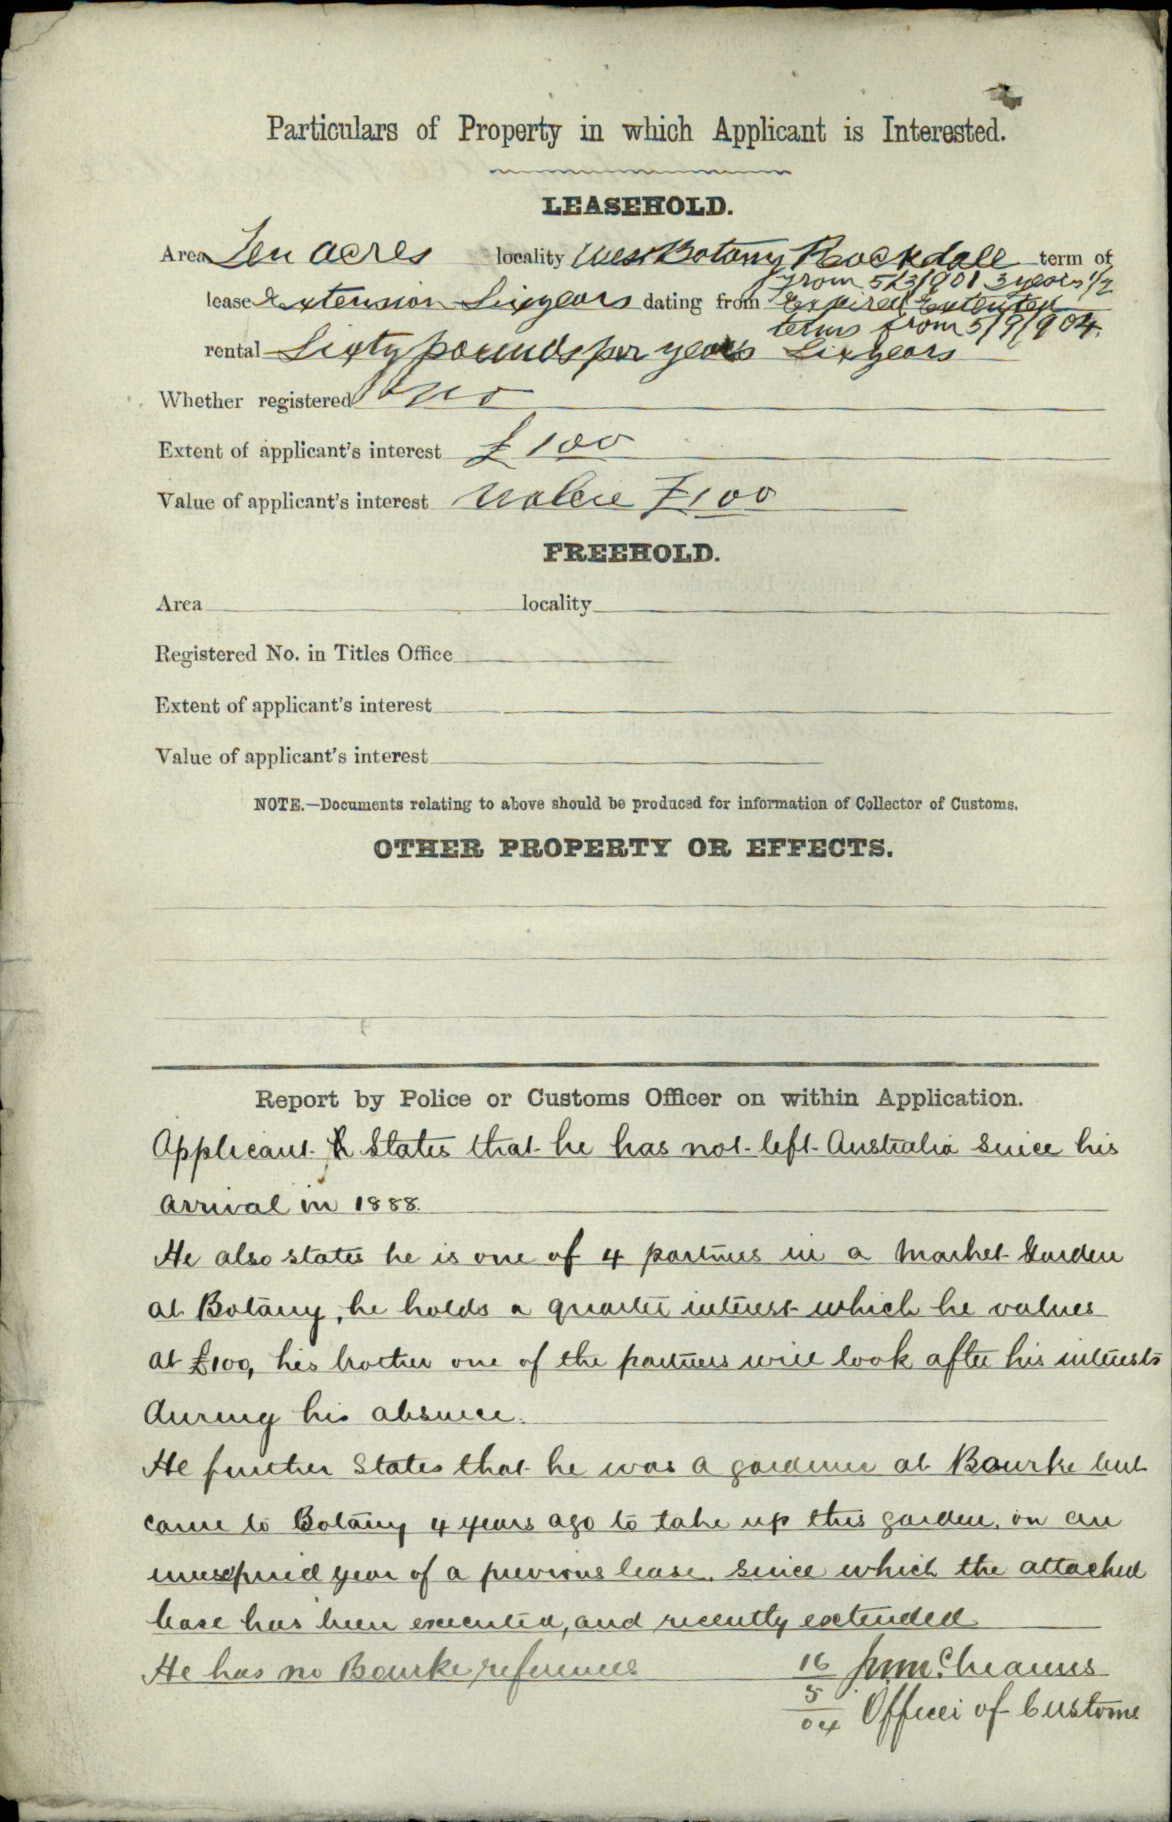 Particulars of Property in which Applicant is Interested.
LEASEHOLD.
Area Ten acres locality West Botany Rockdale term of
from 5/3/901 3 years 1/2
lease Extension Six years dating from Expired Extented
terms from 5/9/904.
rental Sixty pounds per years Six years
Whether registered No
Extent of applicant's interest £100
Value of applicant's interest Value £100
FREEHOLD.
Area locality
Registered No. in Titles Office
Extent of applicant's interest
Value of applicant's interest
NOTE.—Documents relating to above should be produced for information of Collector of Customs.
OTHER PROPERTY OR EFFECTS.
Report by Police or Customs Officer on within Application.
Applicant States that he has not left Australia since his
arrival in 1888.
He also states he is one of 4 partners in a Market Garden
at Botany, he holds a quarter interest which he values
at £100, his brother one of the partners will look after his interests
during his absence.
He further States that he was a gardener at Bourke but
came to Botany 4 years ago to take up this garden, on an
unexpired year of a previous lease. since which the attached
lease has been executed, and recently extended
He has no Bourke references
16
5
04 Officer of Customs